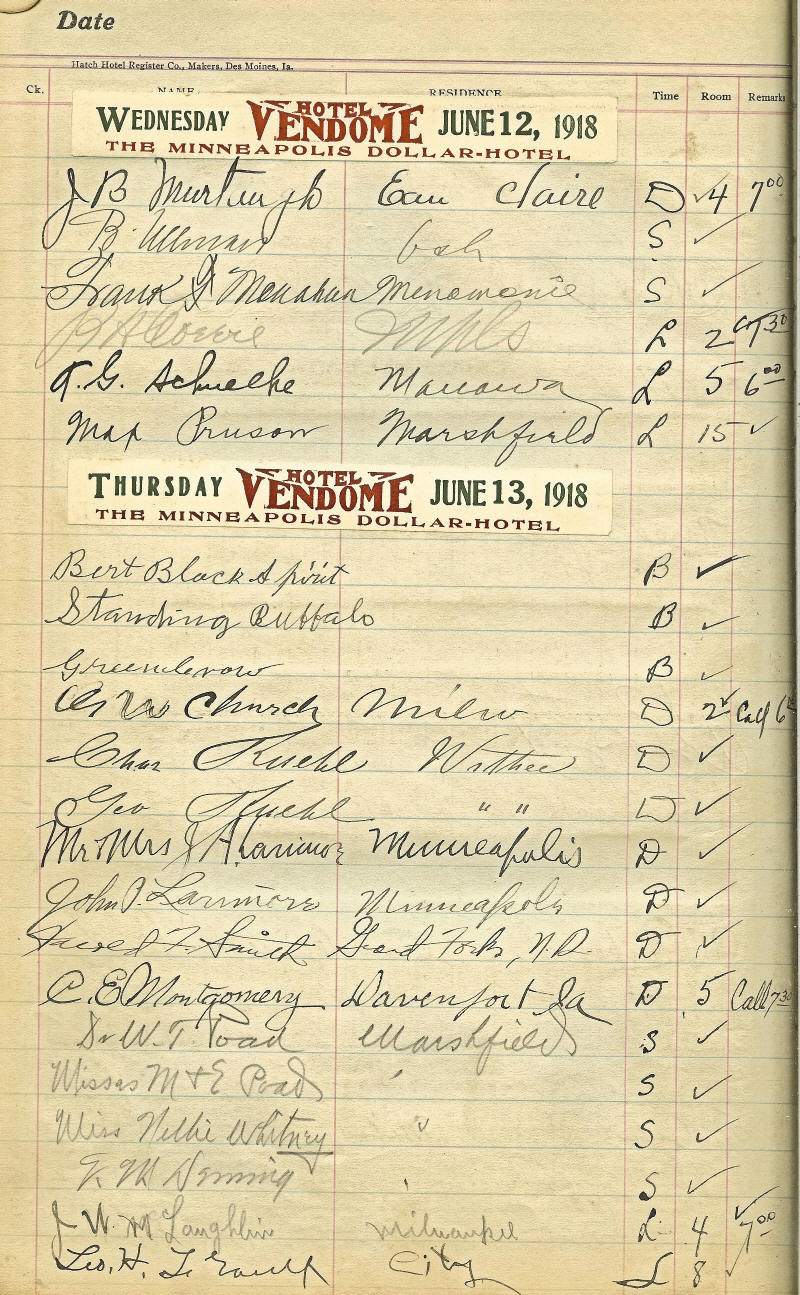 Date
Hatch Hotel Register Co., Makers, Des Moines, Ia.
Ck. NAME RESIDENCE Time Room Remarks
WEDNESDAY HOTEL VENDOME JUNE 12, 1918
THE MINNEAPOLIS DOLLAR-HOTEL
J B Murtaugh Eau Claire D ✓ 4 7 00
B. Ullman Osh S ✓
Frank J Monahan Menomonie S ✓
Mpls L 2 7 30
A. G. Schuelke Manawa L 5 6 00
Max Pruson Marshfield L 15 ✓
THURSDAY HOTEL VENDOME JUNE 13, 1918
THE MINNEAPOLIS DOLLAR-HOTEL
Bert Black Spirit B ✓
Standing Buffalo B ✓
B ✓
Church Milw D 2 ✓ Call 6
Chas Kuehl Withee D ✓
Geo Kuehl " " D ✓
Mr & Mrs J A Larimore Minneapolis D ✓
John P. Larimore Minneapolis D ✓
F. Smith Grand Forks, N.D. D ✓
C. E Montgomery Davenport Ia D 5 Call 7 30
Dr W. T. Poad Marshfield S ✓
Misses M & E Poad ' S ✓
Miss Nellie Whitney " S ✓
Denning ' S ✓
J W. McLaughlin Milwaukee L 4 ✓ 7 00
Geo. H. City L 8 ✓